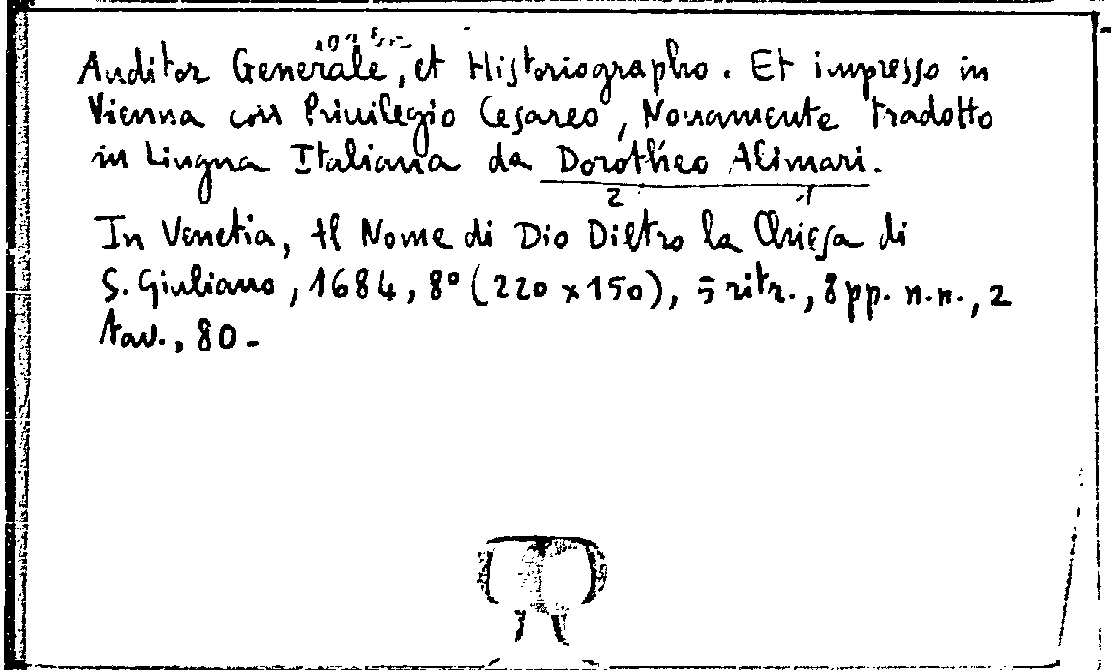 Auditor Generale, et Historiographo. Et impresso in
Vienna con Priuilegio Cesareo, Nouamente tradotto
in Lingua Italiana da Dorotheo Alimari.
2 1
In Venetia, Al Nome di Dio Dietro la Chiesa di
S. Giuliano, 1684, 8° (220 x 150), 5 ritr., 8 pp. n.n., 2
tav., 80.-